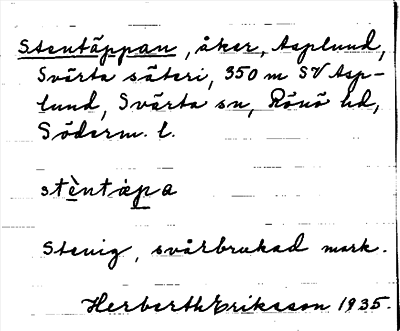 Stentäppan, åker, Asplund,
Svärta säteri, 350 m SV Asp-
lund, Svärta sn, Rönö hd,
Söderm. l.
stὲntäpa
Stenig, svårbrukad mark.
Herberth Eriksson 1935.